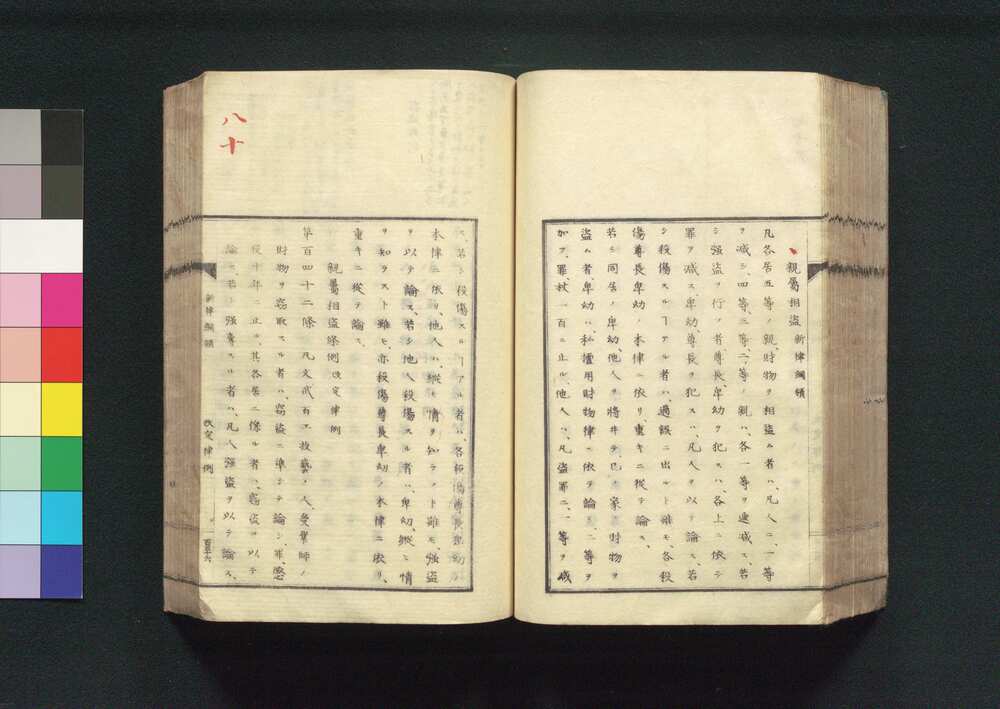 親屬相盗 新律綱領
凡各居五等ノ親、財物ヲ相盗ム者ハ、凡人ニ、一等
ヲ減シ、四等、三等、二等ノ親ハ、各一等ヲ遞減ス、若
シ強盗ヲ行フ者尊長、卑幼ヲ犯スハ、各上ニ依テ
罪ヲ減ス、卑幼、尊長ヲ犯スハ、凡人ヲ以テ論ス、若
シ殺傷スルヿアル者ハ、過誤ニ出ルト雖モ、各殺
傷尊長卑幼ノ本律ニ依リ、重キニ從テ論ス、
若シ同居ノ卑幼、他人ヲ將井テ、己ノ家ノ財物ヲ
盗ム者、卑幼ハ、私擅用財物律ニ依テ論シ、二等ヲ
加フ、罪、杖一百ニ止ル、他人ハ、凡盗罪ニ、一等ヲ減
ス、若シ殺傷スルヿアル者ハ、各殺傷尊長卑幼ノ
本律ニ依リ、他人ハ、縱ヒ情ヲ知ラスト雖モ、強盗
ヲ以テ論ス、若シ他人殺傷スル者ハ、卑幼、縱ヒ情
ヲ知ラスト雖モ、亦殺傷尊長卑幼ノ本律ニ依リ、
重キニ從テ論ス、
親屬相盗条例 改定律例
第百四十二條 凡文武百工技藝ノ人、受業師ノ
財物ヲ窃取スル者ハ、窃盗ニ準シテ論シ、罪、懲
役十年ニ止ル、其各居ニ係ル者ハ、窃盗ヲ以テ
論ス、若シ強奪スル者ハ、凡人強盗ヲ以テ論ス、
新律綱領
改定律例
百五十六
八十